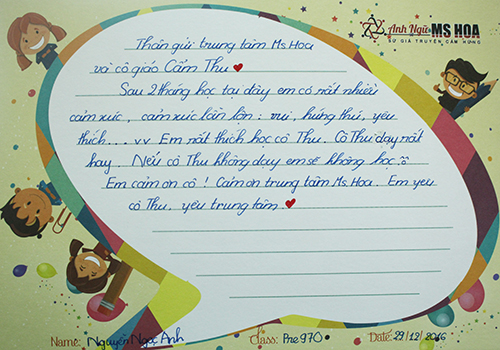 Anh Ngữ MS HOA
SỨ GIẢ TRUYỀN CẢM HỨNG
Thân gửi: trung tâm Ms Hoa
và cô giáo Cẩm Thu
Sau 2 tháng học tại đây em có rất nhiều
cảm xúc, cảm xúc lẫn lộn: vui, hứng thú, yêu
thích....v.v Em rất thích học cô Thu. Cô Thu dạy rất
hay. Nếu cô Thu không dạy em sẽ không học
Em cảm ơn cô! Cảm ơn trung tâm Ms Hoa. Em yêu
cô Thu, yêu trung tâm.
Name: Nguyễn Ngọc Anh Class: Pre 970 Date: 29/12/2016